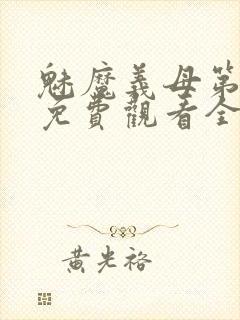 魅魔義母第
免費觀看全
黃光裕